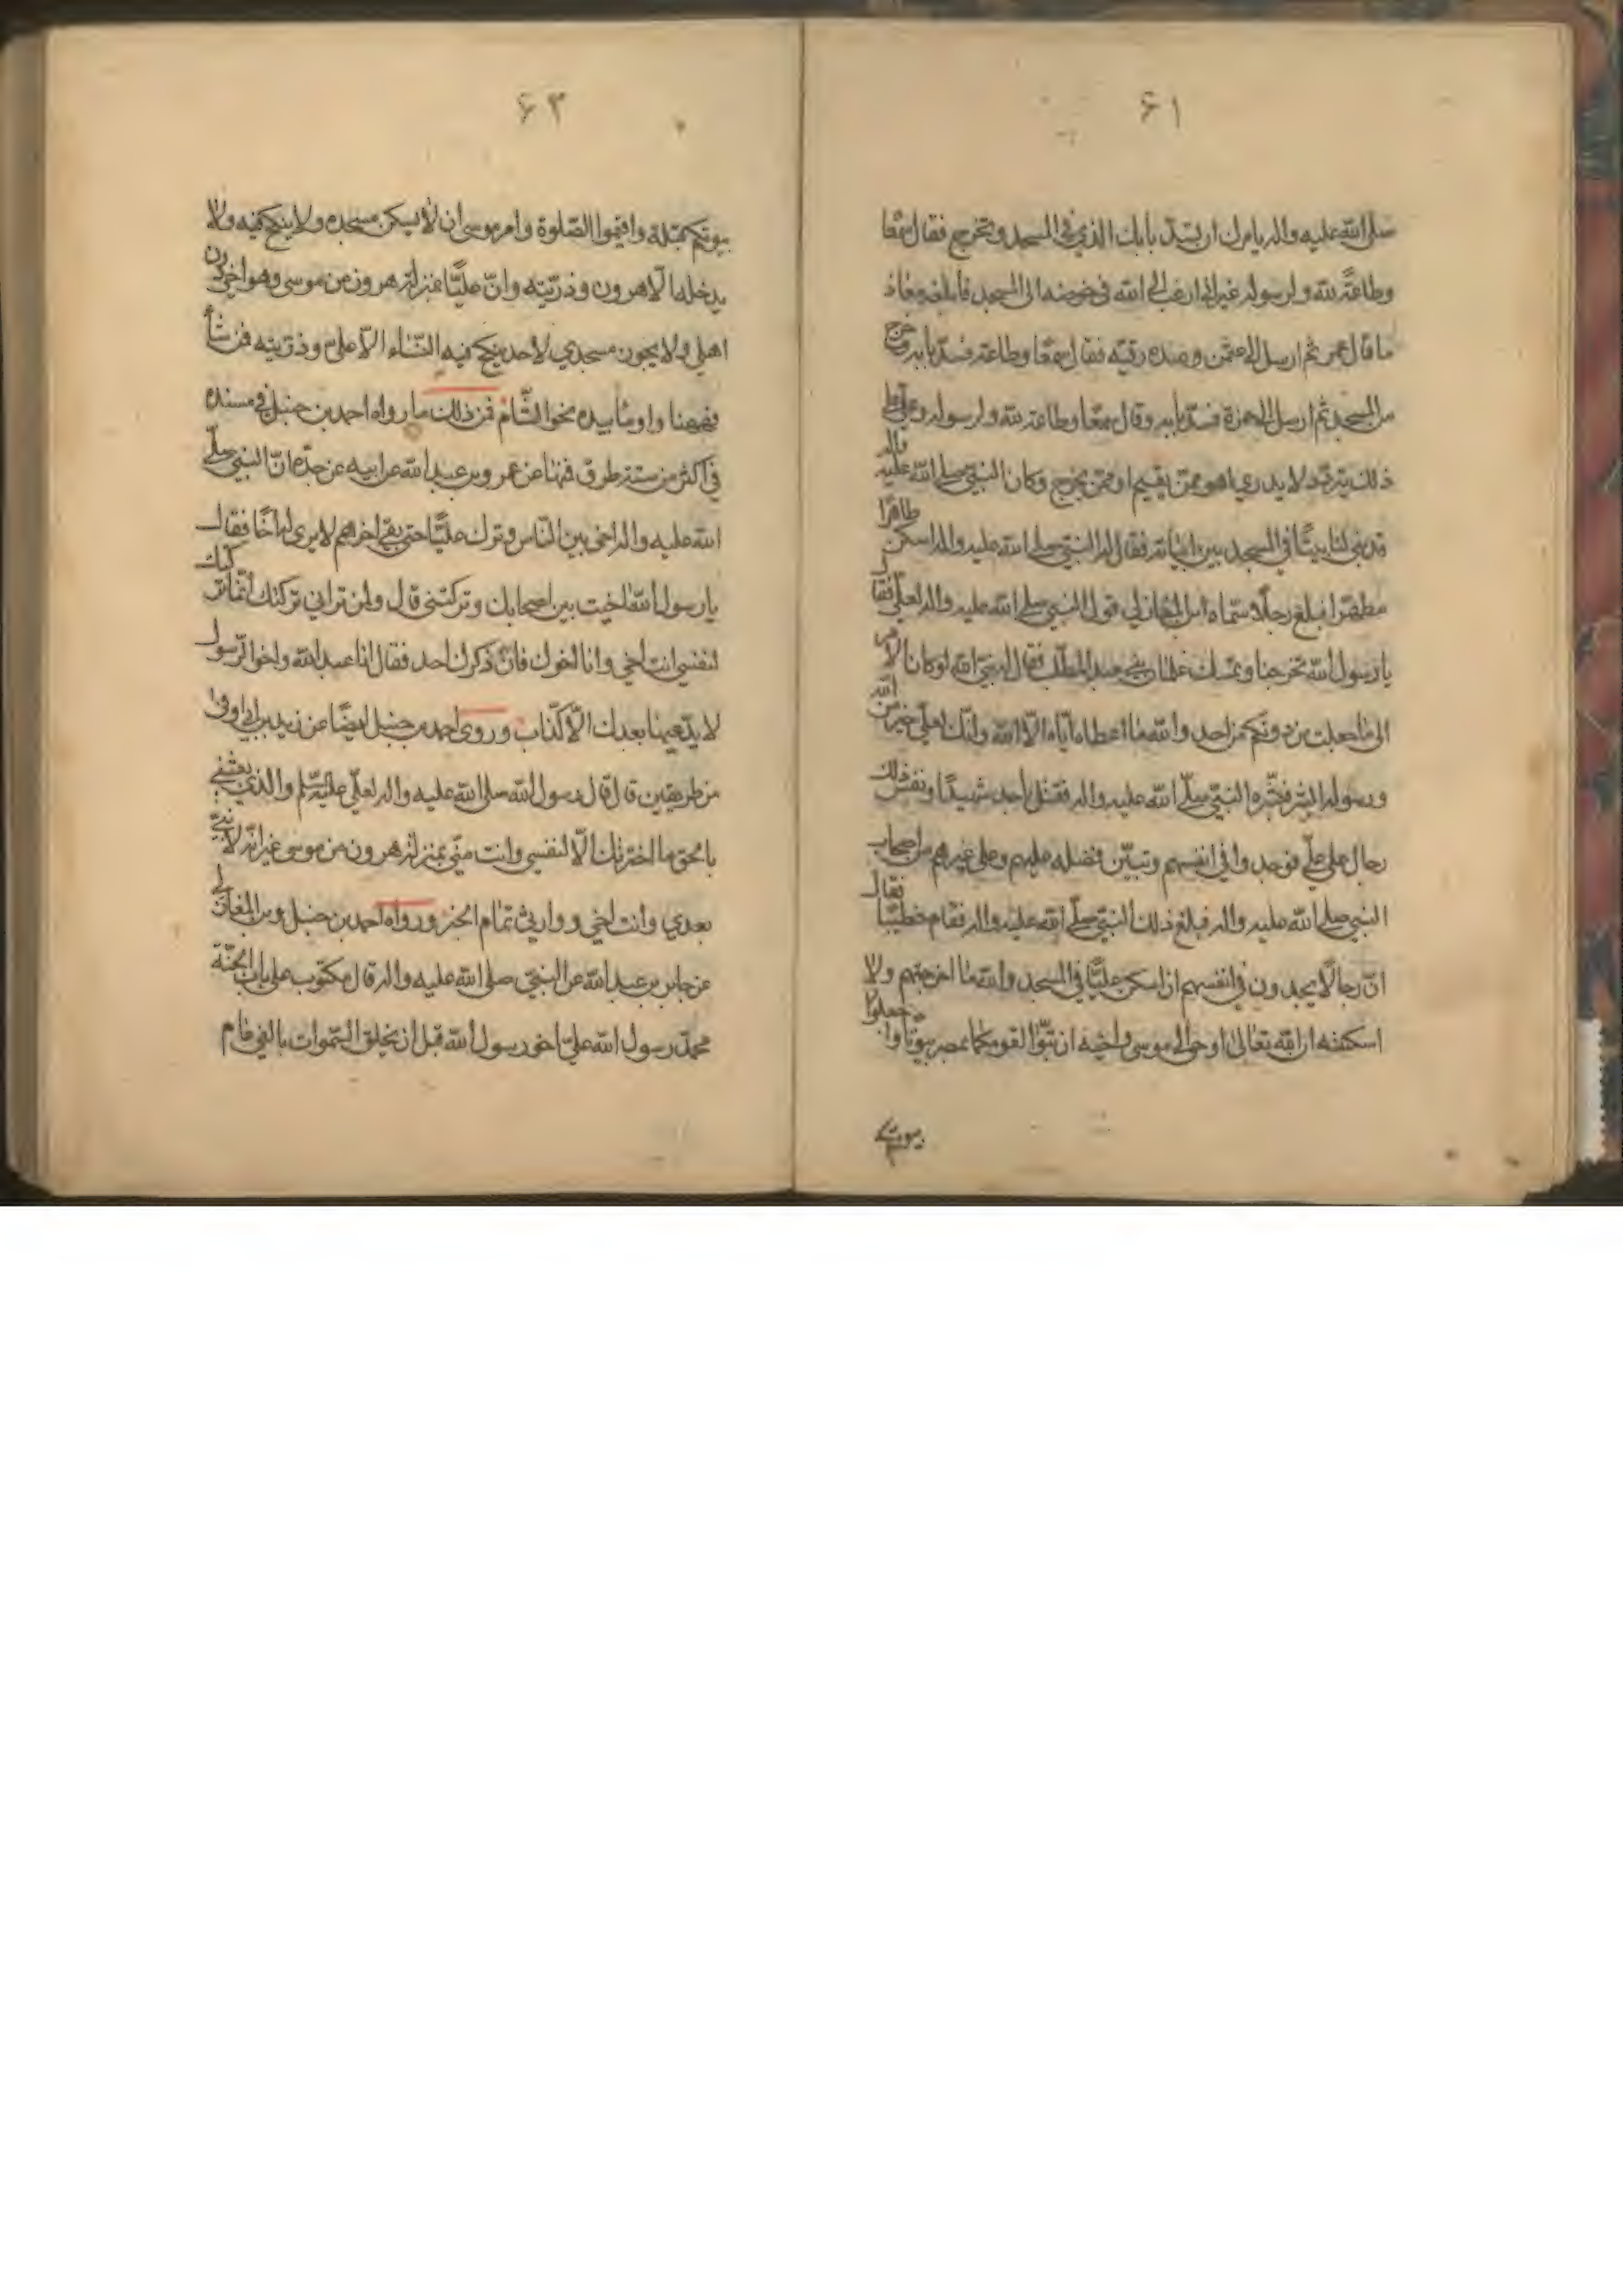 ۶۱
صلى الله عليه واله يامرك ان تسدّ بابك الذي في المسجد وتخرج فقال سمعًا
وطاعةً لله ولرسوله غير اني ارغب الى الله في خوخة الى المسجد فابلغه معاذ
ما قال عمر ثم ارسل الى عثمن وعنده رقيّة فقال سمعًا وطاعة فسدّ بابه وخرج
من المسجد ثم ارسل الى حمزة فسدّ بابه وقال سمعًا وطاعة لله ولرسوله وعلي على
ذلك يتردّد لا يدري اهو ممّن يقيم او ممّن يخرج وكان النبيّ صلى الله عليه واله
قد بنى لنا بيتًا في المسجد بين ابياته فقال له النبي صلى الله عليه واله اسكن طاهرًا
مطهّرًا فبلغ رجلًا سمّاه ابن المغازلي قول النبي صلى الله عليه واله لعليّ فقا
يا رسول الله تخرجنا وتمسك غلمان بني عبد المطّلب فقال له نبيّ الله لو كان الامر
الى ما جعلت من دونكم من احد والله ما اعطاه ايّاه الّا الله وانّك لعلى خير من الله
ورسوله ابشر فبشّره النبيّ صلّى الله عليه واله فقتل باحد شهيدًا ونفس ذلك
رجال على عليّ فوجدوا في انفسهم وتبيّن فضله عليهم وعلى غيرهم من اصحاب
النبي صلى الله عليه واله فبلغ ذلك النبيّ صلّى الله عليه واله فقام خطيبًا فقال
انّ رجالًا يجدون في انفسهم ان اسكن عليًّا في المسجد والله ما اخرجتهم ولا
اسكنته ان الله تعالى اوحى الى موسى واخيه ان تبوّا لقومكما بمصر بيوتًا واجعلوا
بيوتكم
۶۲
بيوتكم قبلة واقيموا الصّلوة وامر موسى ان لا يسكن مسجده ولا ينكح فيه ولا
يدخله الّا هرون وذريّته وانّ عليًّا بمنزلة هرون من موسى وهو اخي دون
اهلي ولا يجوز مسجدي لاحد ينكح فيه النّساء الّا علي وذريّته فمن شاء
فههنا واومأ بيده نحو الشّام فمن ذلك ما رواه احمد بن حنبل في مسنده
في اكثر من ستة طرق فمنها عن عمرو بن عبد الله عن ابيه عن جدّه انّ النبي صلّى
الله عليه واله اخى بين النّاس وترك عليًّا حتى بقي اخرهم لا يرى له اخًا فقال
يا رسول الله اخيت بين اصحابك وتركتني قال ولم تراني تركتك انّما تركتك
لنفسي انت اخي وانا اخوك فان ذكرك احد فقل انا عبد الله واخو الرّسول
لا يدّعيها بعدك الّا كذّاب وروى احمد بن حنبل ايضًا عن زيد بن ابي اوفى
من طريقين قال قال رسول الله صلى الله عليه واله لعليّ عليه السّلم والذي بعثني
بالحق ما اخترتك الّا لنفسي وانت منّي بمنزلة هرون من موسى غير انّه لا نبيّ
بعدي وانت اخي ووارثي تمام الخبر ورواه احمد بن حنبل وبن المغازلي
عن جابر بن عبد الله عن النبيّ صلى الله عليه واله قال مكتوب على باب الجنّة
محمّد رسول الله عليّ اخو رسول الله قبل ان يخلق السّموات بالفي عام